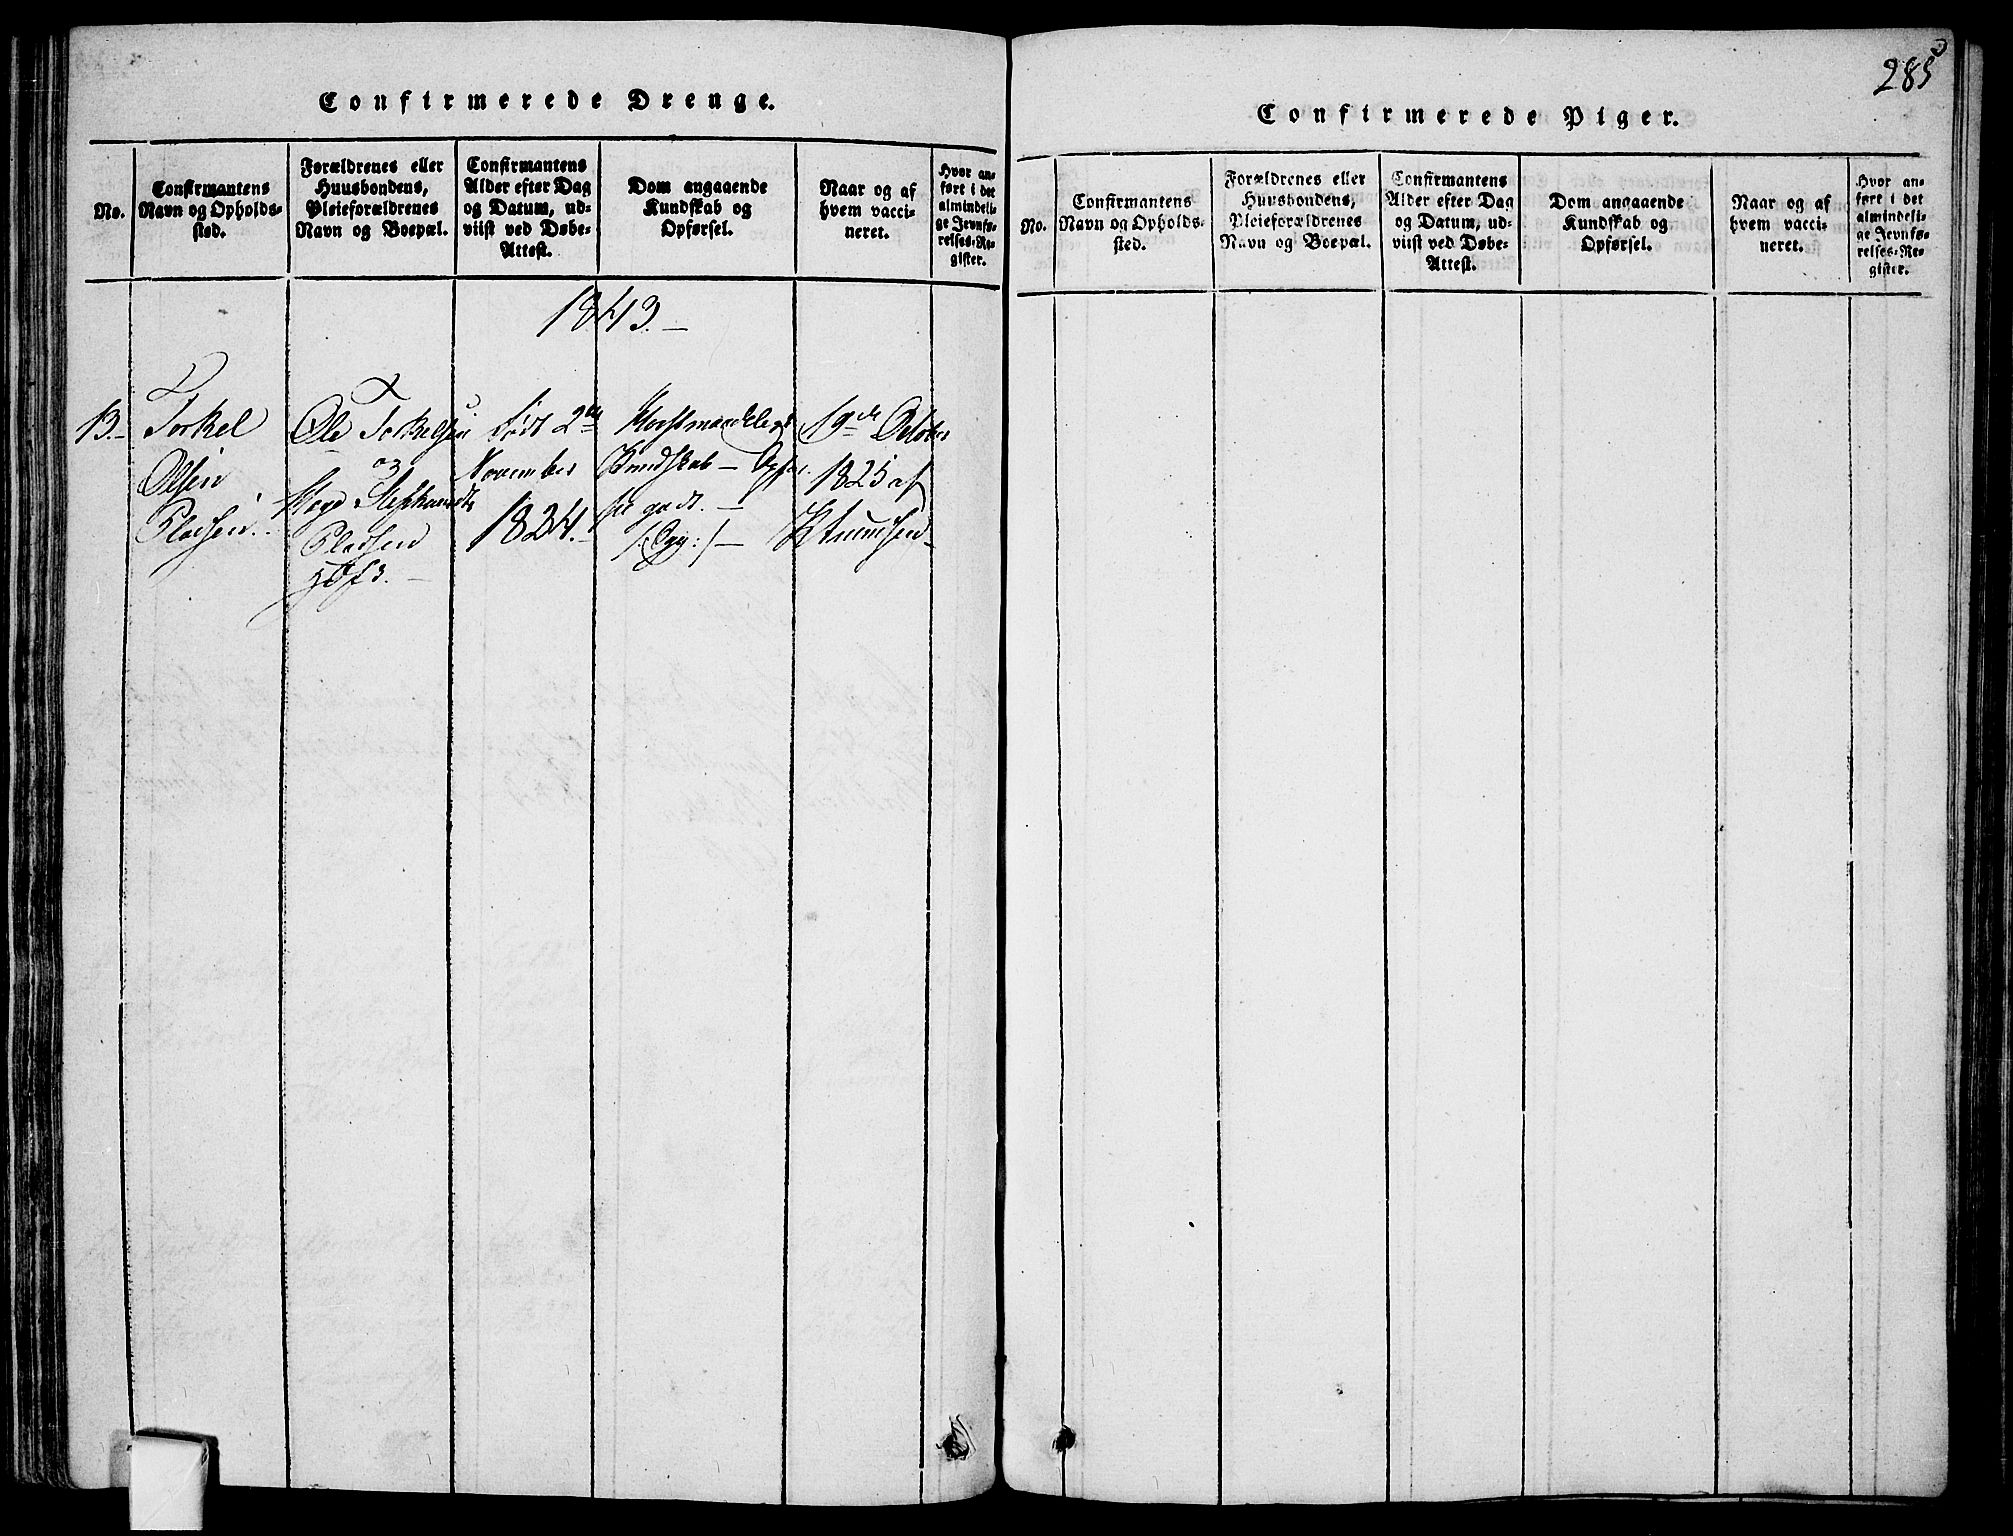 285
Confirmerede Drenge.
No.
Confirmantens
Navn og Opholds-
sted.
Forældrenes eller
Huusbondens,
Pleieforældrenes
Navn og Boepæl.
Confirmantens
Alder efter Dag
og Datum, ud-
viist ved Døbe-
Attest.
Dom angaaende
Kundskab og
Opførsel.
Naar og af
hvem vacci-
neret.
Hvor an-
ført i det
almindeli-
ge Jevnfø-
relses-Re-
gister.
1843.-
13.-
Torkel
Olsen
Pladsen.
Ole Torkelsen
og
Stephansdtr
Pladsen
Født 2den
November
1824.-
Kundskab - Opfør-
sel godt. -
19de October
1825 af
Knudsen
Confirmerede Piger.
No.
Confirmantens
Navn og Opholds-
sted.
Forældrenes eller
Huusbondens,
Pleieforældrenes
Navn og Boepæl.
Confirmantens
Alder efter Dag
og Datum, ud-
viist ved Døbe-
Attest.
Dom angaaende
Kundskab og
Opførsel.
Naar og af
hvem vacci-
neret.
Hvor an-
ført i det
almindeli-
ge Jevnfø-
relses-Re-
gister.